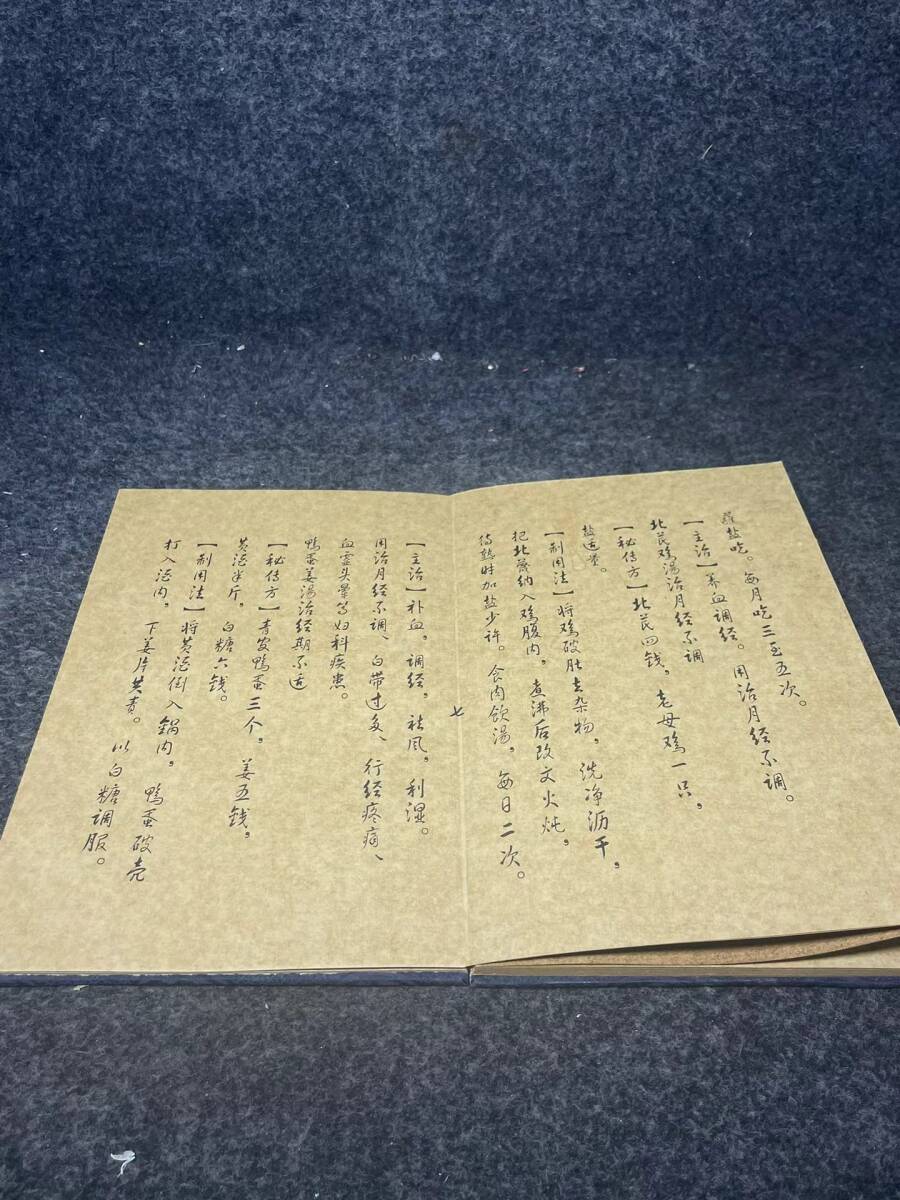 蘸盐吃。每月吃三至五次。
【主治】养血调经。用治月经不调。
北芪鸡汤治月经不调
【秘传方】北芪四钱，老母鸡一只，
盐适量。
【制用法】将鸡破肚去杂物，洗净沥干，
把北芪纳入鸡腹内，煮沸后改文火炖，
待熟时加盐少许。食肉饮汤，每日二次。
七
【主治】补血，调经，祛风，利湿。
用治月经不调、白带过多、行经疼痛、
血虚头晕等妇科疾患。
鸭蛋姜汤治经期不适
【秘传方】青皮鸭蛋三个，姜五钱，
黄酒半斤，白糖六钱。
【制用法】将黄酒倒入锅内，鸭蛋破壳
打入酒内，下姜片共煮。以白糖调服。